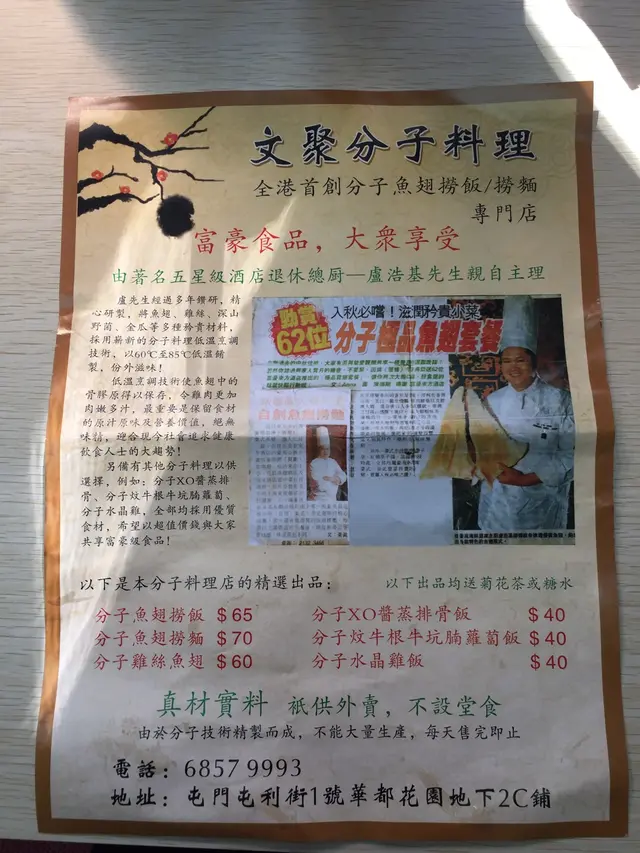 文聚分子料理
全港首創分子魚翅撈飯/撈麵
專門店
富豪食品，大衆享受
由著名五星級酒店退休總厨—盧浩基先生親自主理
盧先生經過多年鑽研，精
心研製，將魚翅、雞絲、深山
野菌、金瓜等多種矜貴材料，
採用嶄新的分子料理低溫烹調
技術，以60℃至85℃低溫鋪
製，份外滋味！
低溫烹調技術使魚翅中的
骨膠原得以保存，令雞肉更加
肉嫩多汁，最重要是保留食材
的原汁原味及營養價值，絕無
味精，迎合現今社會追求健康
飲食人士的大趨勢！
另備有其他分子料理以供
選擇，例如：分子XO醬蒸排
骨、分子炆牛根牛坑腩蘿蔔、
分子水晶雞，全部均採用優質
食材，希望以超值價錢與大家
共享富豪級食品！
勁賞
62位
入秋必嚐！滋潤矜貴小菜
分子極品魚翅套餐
以下是本分子料理店的精選出品：
以下出品均送菊花茶或糖水
分子魚翅撈飯 $65
分子XO醬蒸排骨飯 $40
分子魚翅撈麵 $70
分子炆牛根牛坑腩蘿蔔飯 $40
分子雞絲魚翅 $60
分子水晶雞飯 $40
真材實料 祇供外賣，不設堂食
由於分子技術精製而成，不能大量生產，每天售完即止
電話：6857 9993
地址：屯門屯利街1號華都花園地下2C鋪